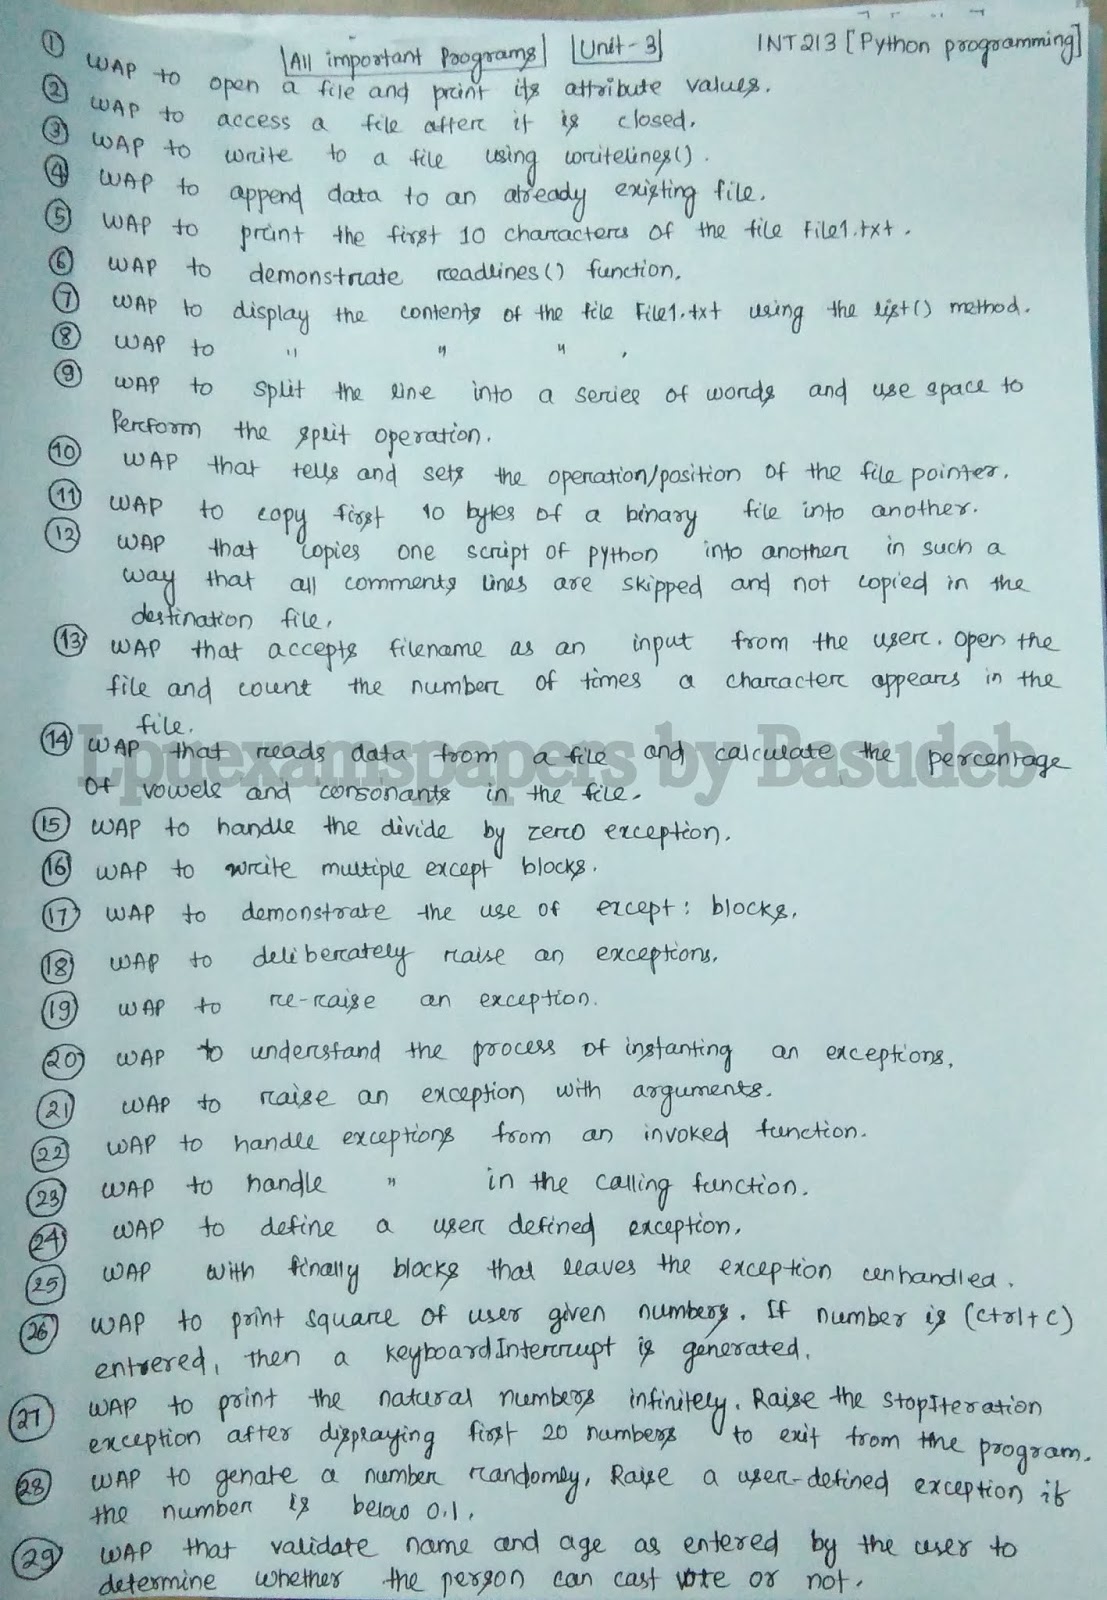 All important Programs Unit-3 INT213 [Python programming]
① WAP to open a file and print its attribute values.
② WAP to access a file after it is closed.
③ WAP to write to a file using writelines().
④ WAP to append data to an already existing file.
⑤ WAP to print the first 10 characters of the file File1.txt.
⑥ WAP to demonstrate readlines() function.
⑦ WAP to display the contents of the file File1.txt using the list() method.
⑧ WAP to " " " ,
⑨ WAP to split the line into a series of words and use space to
Perform the split operation.
⑩ WAP that tells and sets the operation/position of the file pointer.
⑪ WAP to copy first 10 bytes of a binary file into another.
⑫ WAP that copies one script of python into another in such a
way that all comments lines are skipped and not copied in the
destination file.
⑬ WAP that accepts filename as an input from the user. Open the
file and count the number of times a character appears in the
file.
⑭ WAP that reads data from a file and calculate the percentage
Lpuexamspapers by Basudeb
of vowels and consonants in the file.
⑮ WAP to handle the divide by zero exception.
⑯ WAP to write multiple except blocks.
⑰ WAP to demonstrate the use of except: blocks.
⑱ WAP to deliberately raise an exceptions.
⑲ WAP to re-raise an exception.
⑳ WAP to understand the process of instanting an exceptions.
㉑ WAP to raise an exception with arguments.
㉒ WAP to handle exceptions from an invoked function.
㉓ WAP to handle " in the calling function.
㉔ WAP to define a user defined exception.
㉕ WAP with finally blocks that leaves the exception unhandled.
㉖ WAP to print square of user given numbers. If number is (ctrl+c)
entrered, then a KeyboardInterrupt is generated.
㉗ WAP to print the natural numbers infinitely. Raise the StopIteration
exception after displaying first 20 numbers to exit from the program.
㉘ WAP to genate a number randomly. Raise a user-defined exception if
the number is below 0.1.
㉙ WAP that validate name and age as entered by the user to
determine whether the person can cast vote or not.